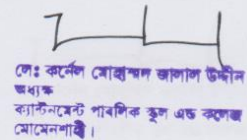 লে: কর্নেল মোহাম্মদ জালাল উদ্দীন
অধ্যক্ষ
ক্যান্টনমেন্ট পাবলিক স্কুল এন্ড কলেজ
মোমেনশাহী।